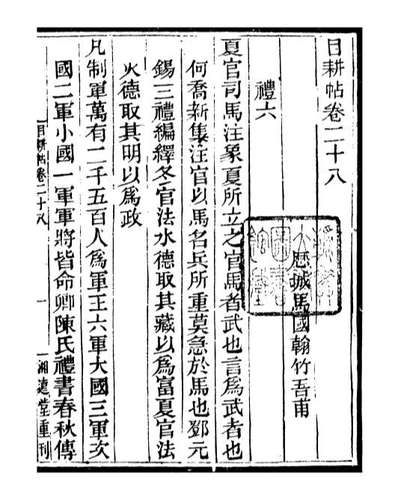 目耕帖卷二十八
歷城馬國翰竹吾甫
禮六
夏官司馬注象夏所立之官馬者武也言為武者也
何喬新集注官以馬名兵所重莫急於馬也鄧元
錫三禮編繹冬官法水德取其藏以為富夏官法
火德取其明以為政
凡制軍萬有二千五百人為軍王六軍大國三軍次
國二軍小國一軍軍將皆命卿陳氏禮書春秋傳
目耕帖卷二十八 一 湘遠堂重刊